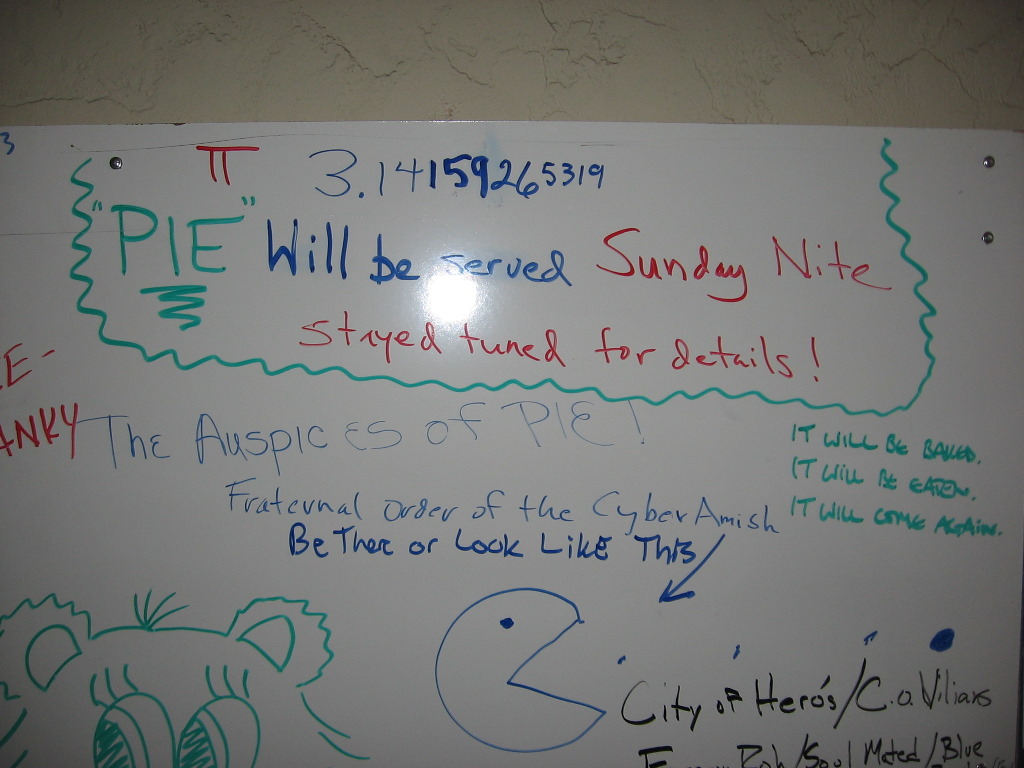 3
π 3.14159265319
"PIE" Will be served Sunday Nite
stayed tuned for details!
E-
ANKY
The Auspices of PIE!
IT WILL BE BAKED.
IT WILL BE EATEN.
IT WILL COME AGAIN.
Fraternal order of the CyberAmish
Be There or Look Like This
City of Hero's/C.o.Villians
Rob/Soul Mated/Blue